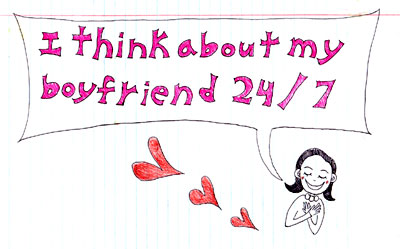 I think about my
boyfriend 24/7